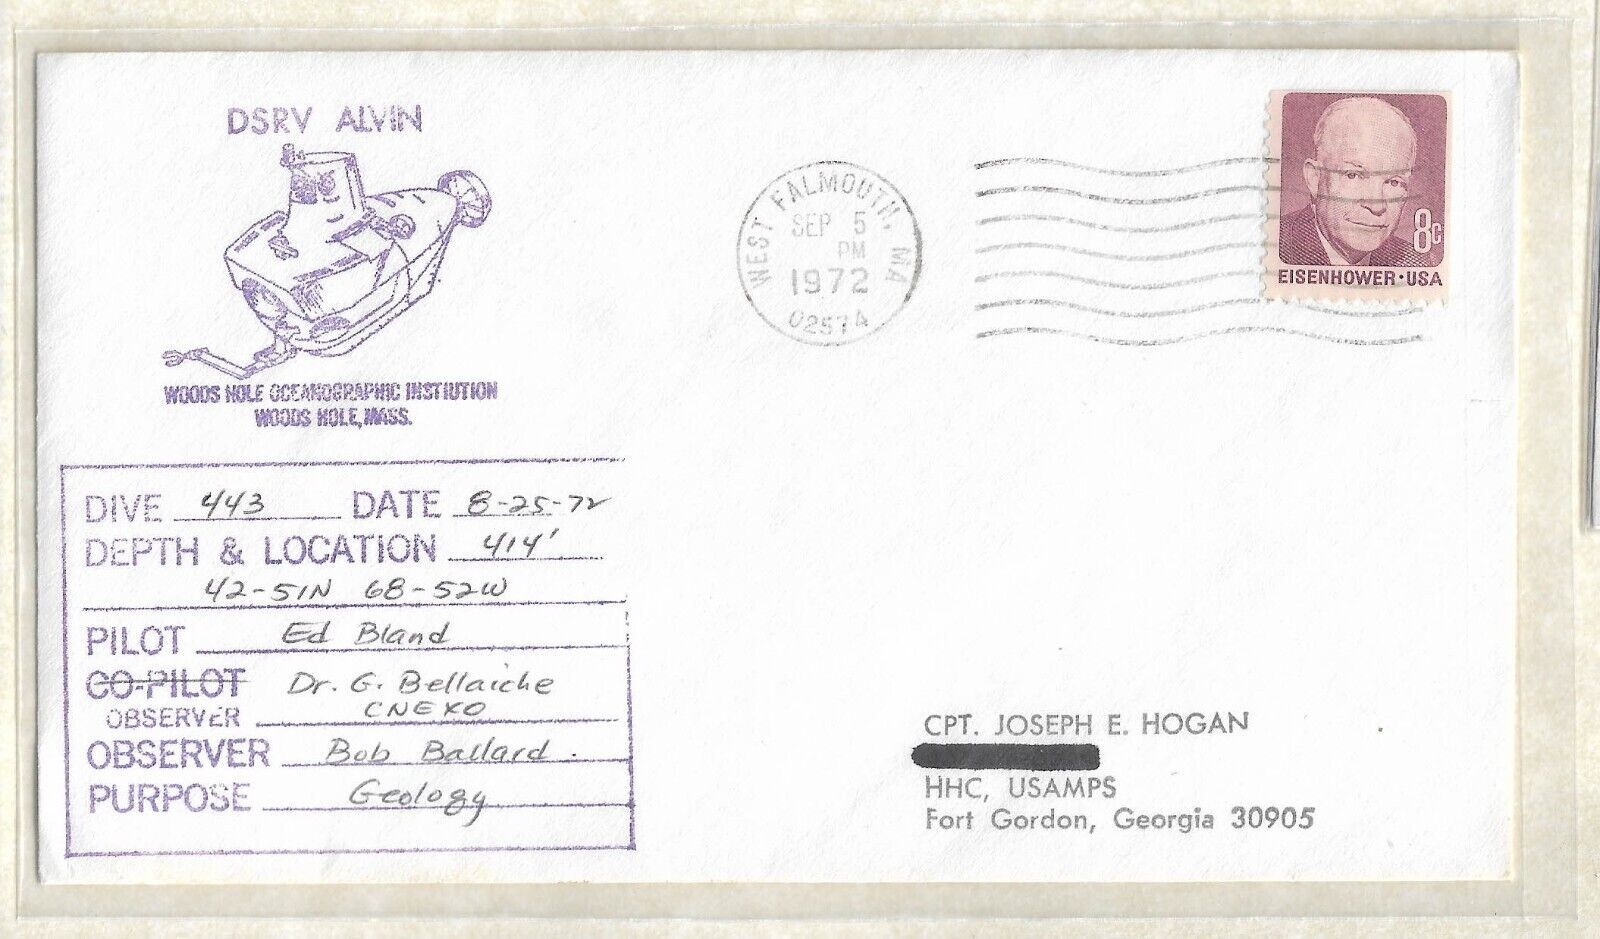 DSRV ALVIN
WOODS HOLE OCEANOGRAPHIC INSTIUTION
WOODS HOLE, MASS.
WEST FALMOUTH, MA
SEP 5
PM
1972
02574
8c
EISENHOWER·USA
DIVE 443 DATE 8-25-72
DEPTH & LOCATION 414'
42-51N 68-52W
PILOT Ed Bland
CO-PILOT Dr. G. Bellaiche
OBSERVER CNEXO
OBSERVER Bob Ballard.
PURPOSE Geology
CPT. JOSEPH E. HOGAN
HHC, USAMPS
Fort Gordon, Georgia 30905